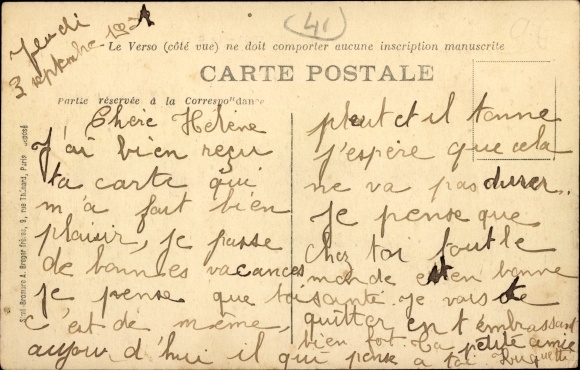 Jeudi
3 septembre 192
41
Le Verso (côté vue) ne doit comporter aucune inscription manuscrite
CARTE POSTALE
Partie réservée à la Correspondance
Chère Hélène
J'ai bien reçu
ta carte qui
m'a fait bien
plaisir, je passe
de bonnes vacances
je pense que toi
c'est de même,
aujourd'hui il
pleut et il tonne
j'espère que cela
ne va pas durer.
je pense que
chez toi tout le
monde est en bonne
santé. je vais te
quitter en t'embrassant
bien fort. Ta petite amie
qui pense à toi Huguette